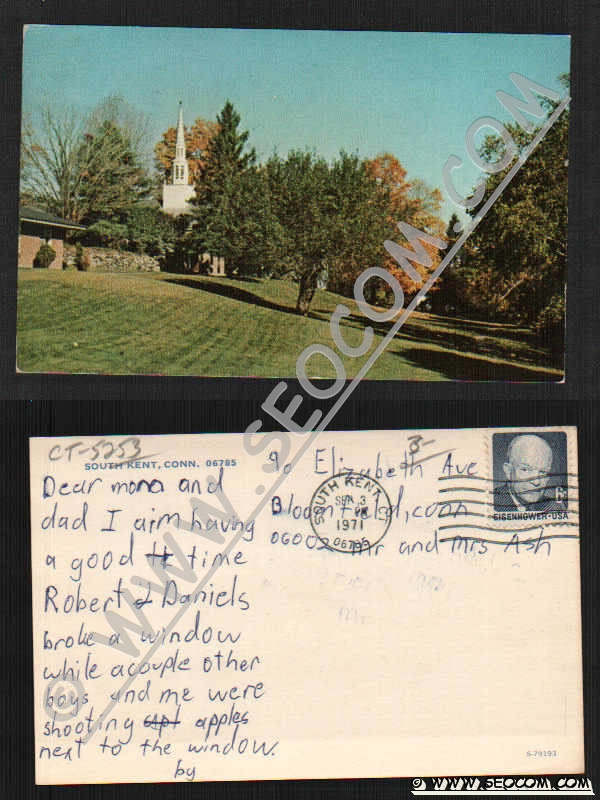 © WWW.SEOCOM.COM
CT-5253
SOUTH KENT, CONN. 06785
Dear mom and
dad I aim having
a good tt time
Robert & Daniels
broke a window
while acouple other
boys and me were
shooting apt apples
next to the window.
by
3-
90 Elizabeth Ave
Bloomfield, conn
06002 Mr and Mrs Ash
SOUTH KENT, CT
3
PM
1971
06785
6c
EISENHOWER·USA
S-79193
© WWW.SEOCOM.COM